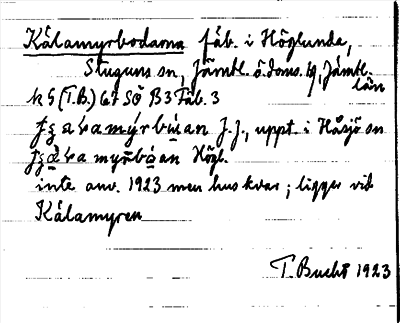 Kälamyrbodarna fäb. i Höglunda,
Stuguns sn, Jämtl. ö. doms. hd, Jämtl.
län
k 5 (T.B.) 67 SÖ B3 Fäb. 3
J.J., uppt. i Håsjö sn
Högl.
inte anv. 1923 men hus kvar; ligger vid
Kälamyren
T. Bucht 1923